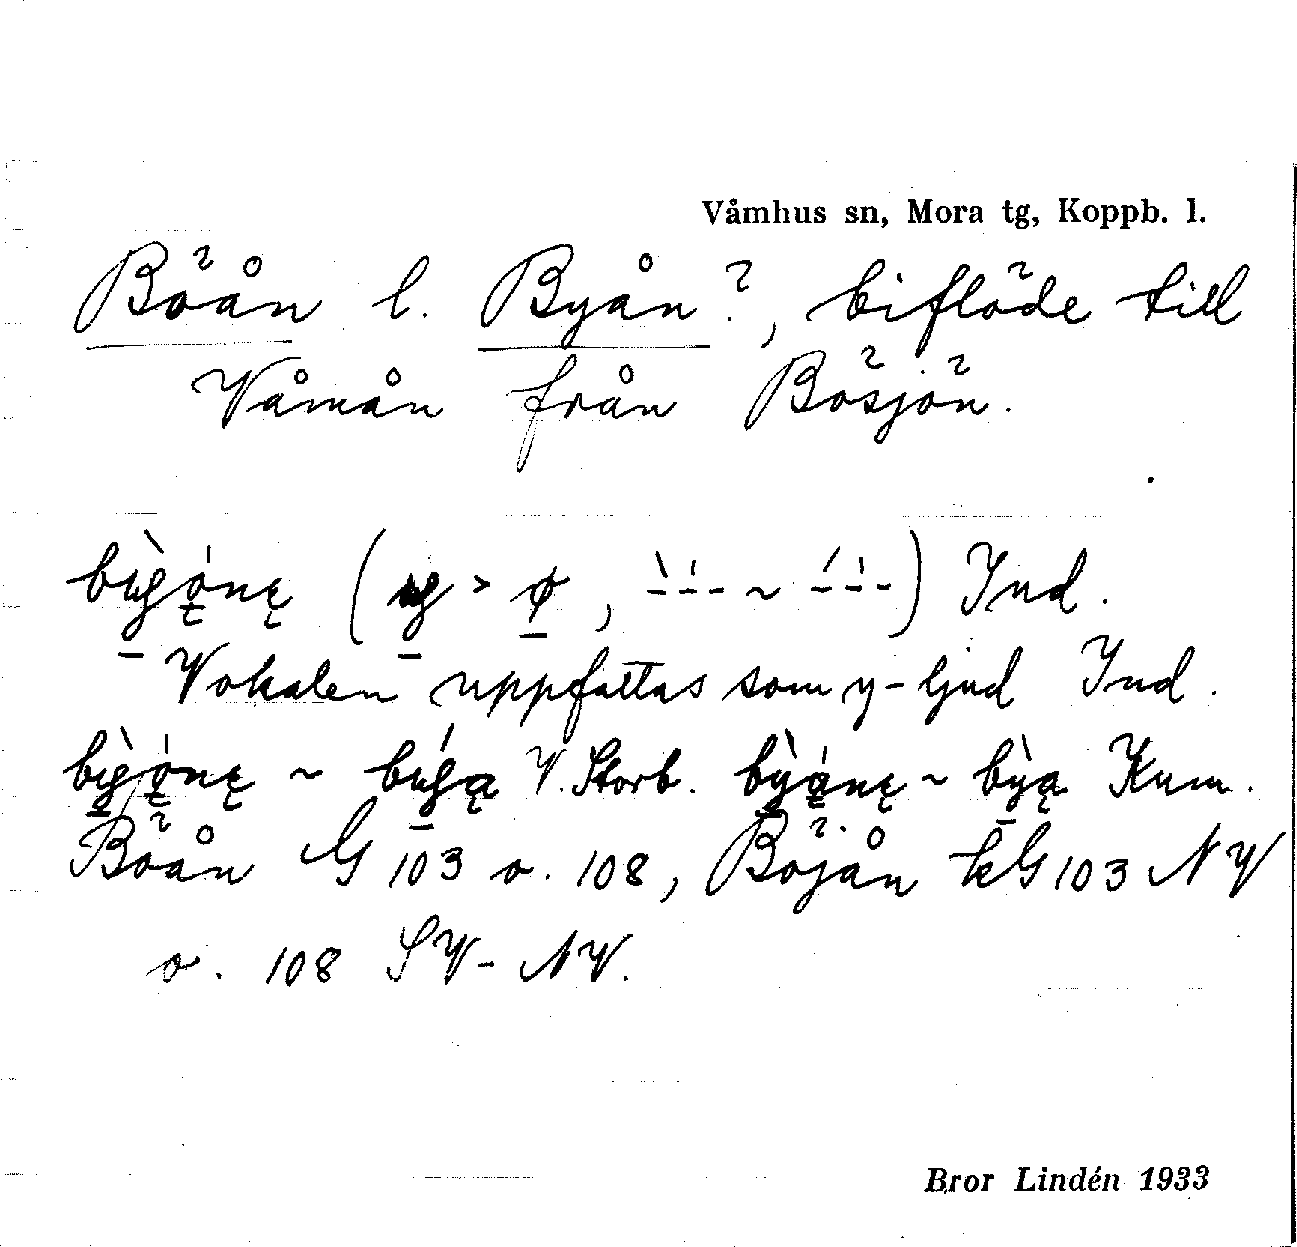 Våmhus sn, Mora tg, Koppb. l.
Böån l. Byån?, biflöde till
Våmån från Bösjön.
( > ø, `-´-- ~ ´-`--) Ind.
Vokalen uppfattas som y-ljud Ind.
~ V. Storb. ~ Kum.
Böån G 103 o. 108, Böjån kG 103 NV
o. 108 SV-NV.
Bror Lindén 1933